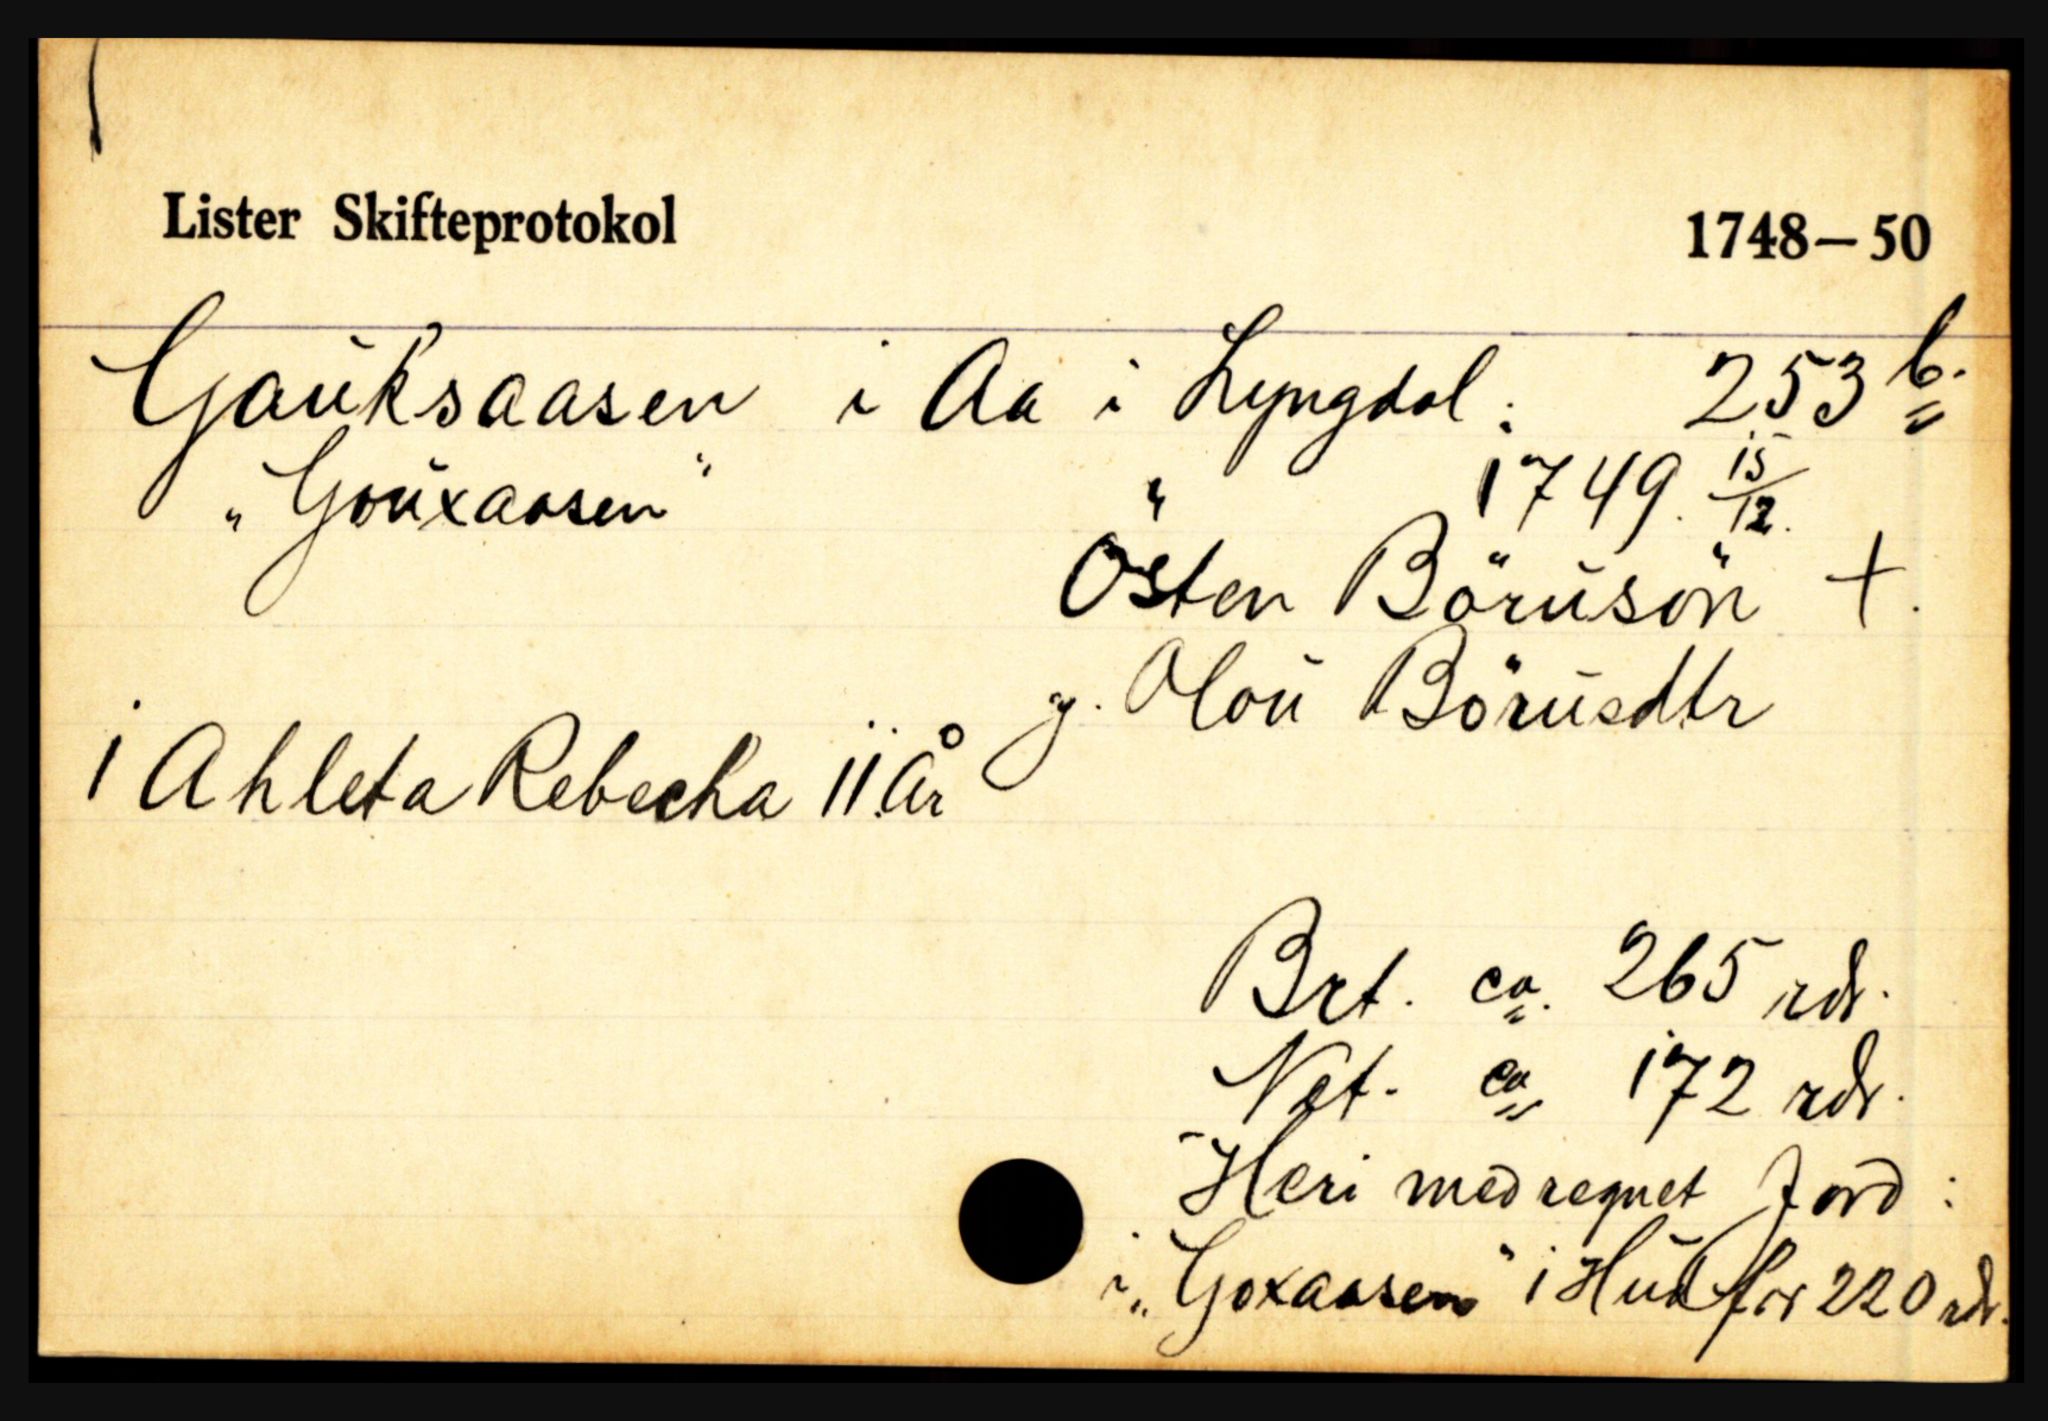 Lister Skifteprotokol 1748–50
Gauksaasen i Aa i Lyngdal: 253 b.
"Gouxaasen" 1749. 15/12.
Östen Börüsön +.
g. Alou Börusdtr
1 Ahleta Rebecka 11 år
Brt. ca. 265 rdr.
Net. ca 172 rdr.
Heri medregnet Jord:
i "Goxaasen" 1 Hud for 220 rdr.